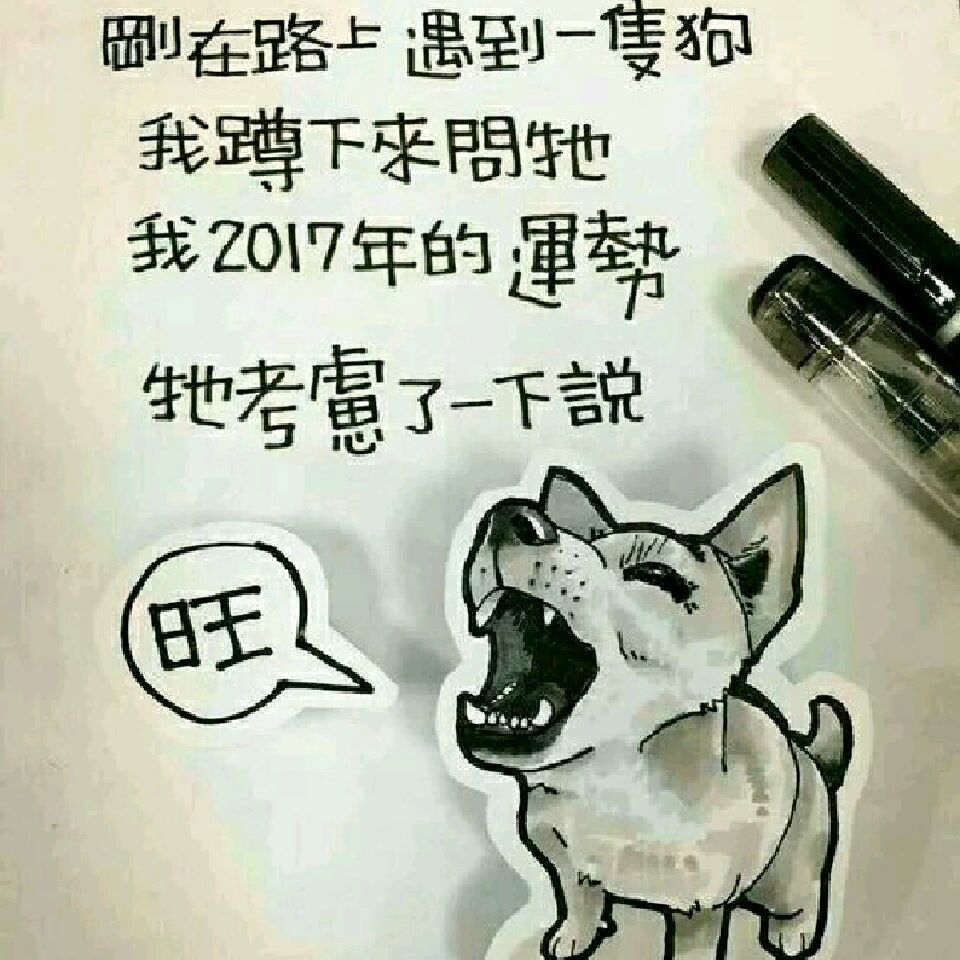 剛在路上遇到一隻狗
我蹲下來問牠
我2017年的運勢
牠考慮了一下說
旺